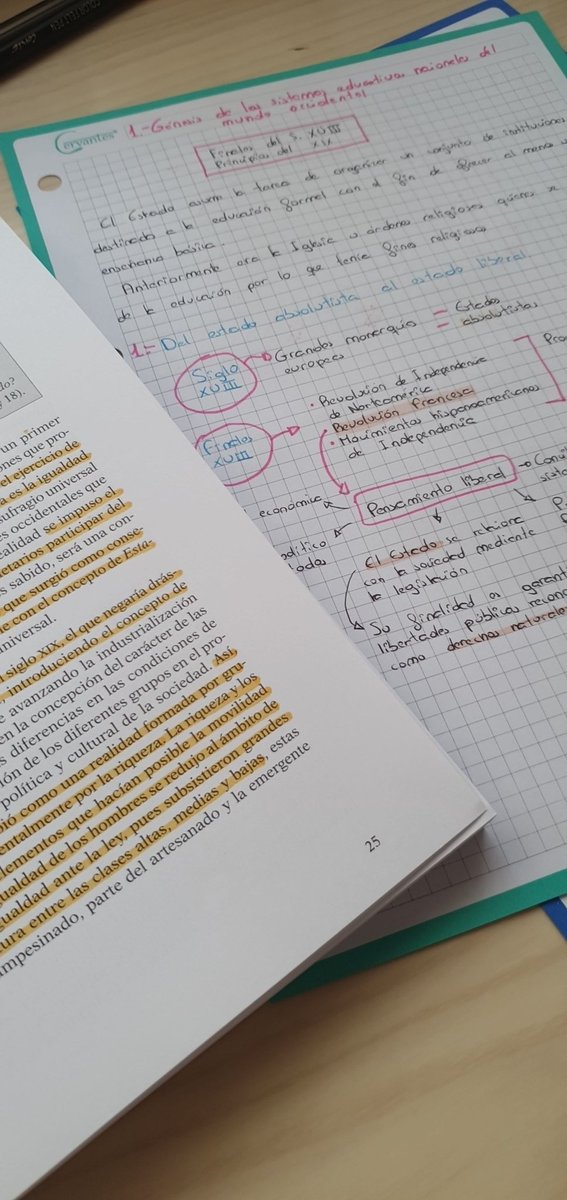 Cervantes
1.- Génesis de los sistemas educativos nacionales del
mundo occidental
Finales del S. XVIII
Principios del XIX
El Estado asume la tarea de organizar un conjunto de instituciones
destinadas a la educación formal con el fin de ofrecer al menos
enseñanza básica.
Anteriormente era la Iglesia u órdenes religiosas quienes se
de la educación por lo que tenía fines religiosos
1.- Del estado absolutista al estado liberal
Siglo
XVIII
Grandes monarquías
europeas
= Estados
absolutistas
Finales
XVIII
· Revolución de Independencia
de Norteamérica
· Revolución Francesa
· Movimientos hispanoamericanos
de Independencia
Pensamiento liberal
económico
El Estado se relaciona
con la sociedad mediante
la legislación
Su finalidad es garantizar
libertades públicas
como derechos naturales
do?
18).
un primer
ones que pro-
el ejercicio de
a es la igualdad
ufragio universal
es occidentales que
ealidad se impuso el
etarios participar del
s sabido, será una con-
que surgió como conse-
e con el concepto de Esta-
universal.
l siglo XIX, el que negaría drás-
, introduciendo el concepto de
e avanzando la industrialización
en la concepción del carácter de las
s diferencias en las condiciones de
ión de los diferentes grupos en el pro-
política y cultural de la sociedad. Así,
bió como una realidad formada por gru-
entalmente por la riqueza. La riqueza y los
lementos que hacían posible la movilidad
ualdad de los hombres se redujo al ámbito de
gualdad ante la ley, pues subsistieron grandes
tura entre las clases altas, medias y bajas, estas
ampesinado, parte del artesanado y la emergente
25